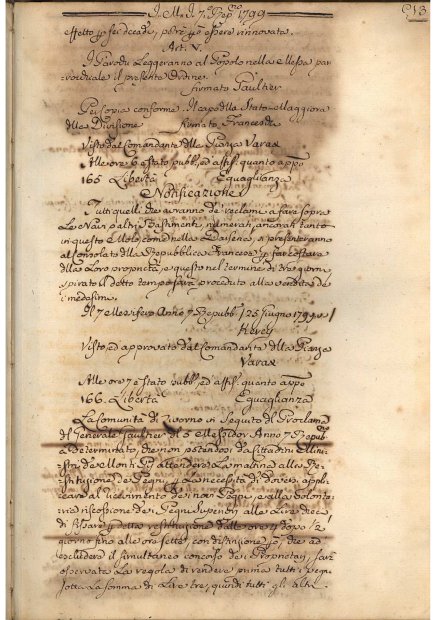 1799
effetto p. sei decadi, potrà p.ò essere rinnovata.
Art. V.
I Parochi leggeranno al Popolo nella Messa par-
rochiale il presente Ordine.
firmato Gaultier
Per copia conforme. Il capo dello Stato Maggiore
della Divisione firmato Francesch
Visto dal Comandante della Piazza Varax
Alle ore 6 è stato pubb.º ed affiss. quanto app.º
165 Libertà Eguaglianza
Notificazione
Tutti quelli che avranno de' reclami a fare sopra
Le Navi o altri Bastimenti, numerati, ancorati tanto
in questo Molo, come nella Darsena, si presenteranno
al Consolato della Repubblica Francese p. far costare
della Loro proprietà, e questo nel termine di tre giorni,
spirato il detto tempo sarà proceduto alla vendita de'
medesimi.
Il 7 Messifero Anno 7 Repubb. / 25 Giugno 1799 /
Visto, ed approvato dal Comandante della Piazza
Varax
Alle ore 7 è stato pubb. ed affiss. quanto app.º
166 Libertà Eguaglianza
La Comunità di Livorno in seguito del Proclama
del Generale Gaultier de' 5 Messidor Anno 7 Repub.
à determinato, che non potendo da Cittadini Mini-
stri de Monti Pij attendere La mattina alla Re-
stituzione de' Pegni p. La necessità di doversi appli-
care al ricevimento dei nuovi Pegni, e alla volonta-
ria riscossione dei Pegni Superiori alle Lire dieci,
di fissare p. detta restituzione dalle ore 4 dopo 1/2
giorno fino alle ore sette, con distinzione p.ò, che ad
escludere il simultaneo concorso dei Proprietarj, sarà
osservata La regola di rendere prima tutti i pegni
sotto La somma di Lire tre, quindi tutti gli altri